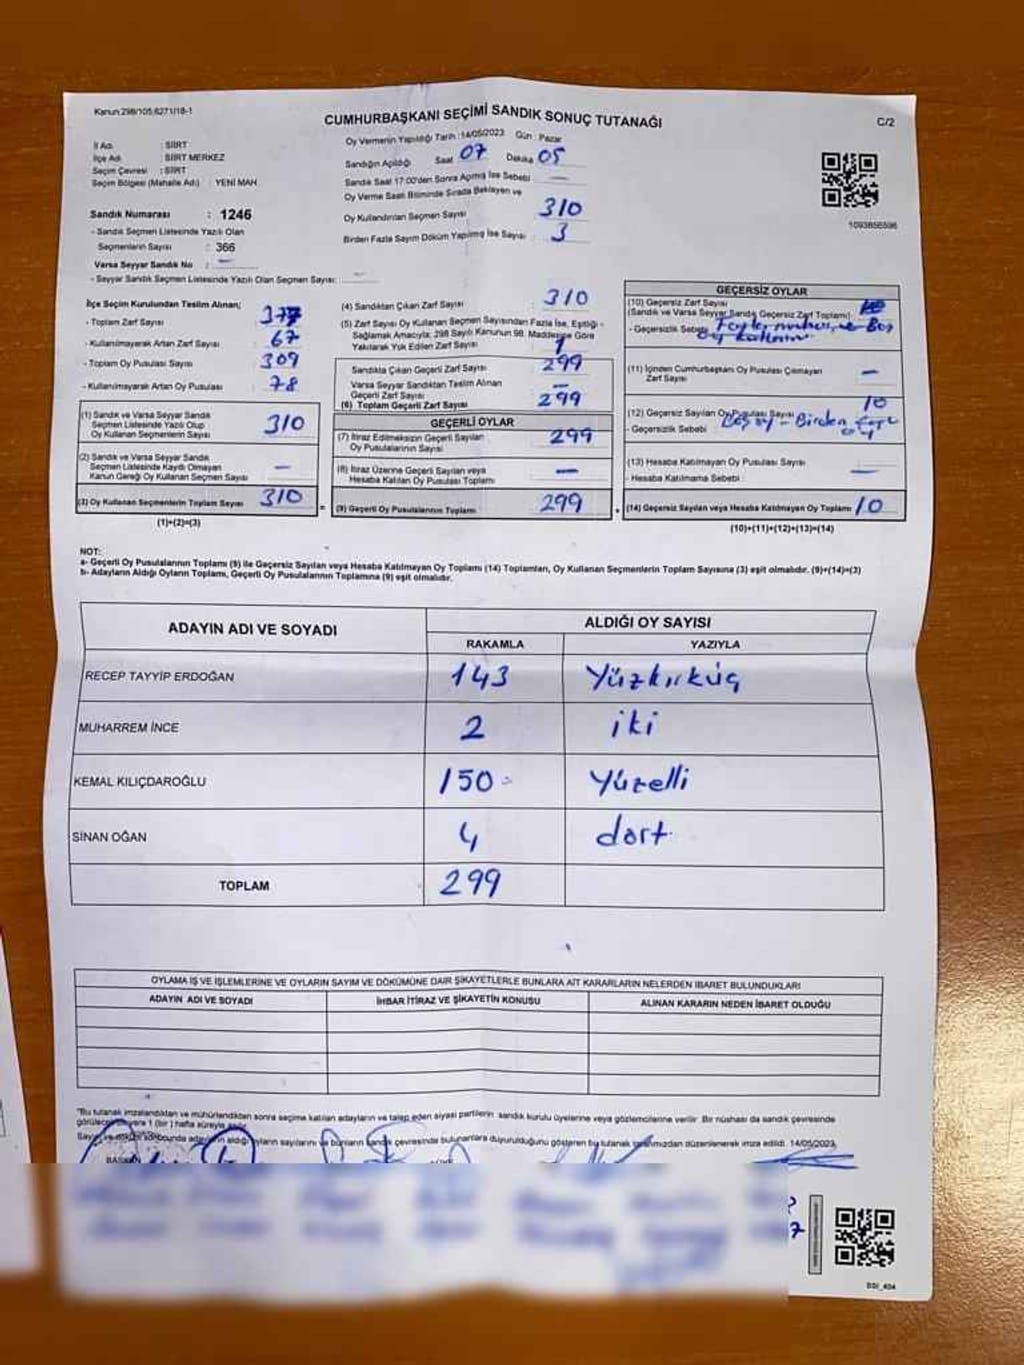 Kanun:298/105,6271/18-1
CUMHURBAŞKANI SEÇİMİ SANDIK SONUÇ TUTANAĞI
C/2
İl Adı : SİİRT
İlçe Adı : SİİRT MERKEZ
Seçim Çevresi : SİİRT
Seçim Bölgesi (Mahalle Adı) : YENİ MAH.
Oy Vermenin Yapıldığı Tarih :14/05/2023 Gün : Pazar
Sandığın Açıldığı Saat 07 Dakika 05
Sandık Saat 17.00'den Sonra Açılmış İse Sebebi : —
Oy Verme Saati Bitiminde Sırada Bekleyen ve
Oy Kullandırılan Seçmen Sayısı : 310
Birden Fazla Sayım Döküm Yapılmış İse Sayısı : 3
1093856596
Sandık Numarası : 1246
- Sandık Seçmen Listesinde Yazılı Olan
Seçmenlerin Sayısı : 366
Varsa Seyyar Sandık No : —
- Seyyar Sandık Seçmen Listesinde Yazılı Olan Seçmen Sayısı: —
İlçe Seçim Kurulundan Teslim Alınan;
- Toplam Zarf Sayısı : 377
- Kullanılmayarak Artan Zarf Sayısı : 67
- Toplam Oy Pusulası Sayısı : 309
- Kullanılmayarak Artan Oy Pusulası : 78
(1) Sandık ve Varsa Seyyar Sandık
Seçmen Listesinde Yazılı Olup
Oy Kullanan Seçmenlerin Sayısı : 310
(2) Sandık ve Varsa Seyyar Sandık
Seçmen Listesinde Kaydı Olmayan
Kanun Gereği Oy Kullanan Seçmen Sayısı : —
(3) Oy Kullanan Seçmenlerin Toplam Sayısı : 310
(1)+(2)=(3)
(4) Sandıktan Çıkan Zarf Sayısı : 310
(5) Zarf Sayısı Oy Kullanan Seçmen Sayısından Fazla İse, Eşitliği
Sağlamak Amacıyla; 298 Sayılı Kanunun 98. Maddesine Göre
Yakılarak Yok Edilen Zarf Sayısı : 1
Sandıkta Çıkan Geçerli Zarf Sayısı : 299
Varsa Seyyar Sandıktan Teslim Alınan
Geçerli Zarf Sayısı : —
(6) Toplam Geçerli Zarf Sayısı : 299
GEÇERLİ OYLAR
(7) İtiraz Edilmeksizin Geçerli Sayılan
Oy Pusulasının Sayısı : 299
(8) İtiraz Üzerine Geçerli Sayılan veya
Hesaba Katılan Oy Pusulası Toplamı : —
(9) Geçerli Oy Pusulalarının Toplamı : 299
GEÇERSİZ OYLAR
(10) Geçersiz Zarf Sayısı
(Sandık ve Varsa Seyyar Sandık Geçersiz Zarf Toplamı) :
- Geçersizlik Sebebi :
(11) İçinden Cumhurbaşkanı Oy Pusulası Çıkmayan
Zarf Sayısı : —
(12) Geçersiz Sayılan Oy Pusulası Sayısı : 10
- Geçersizlik Sebebi : Boş oy - Birden
(13) Hesaba Katılmayan Oy Pusulası Sayısı :
- Hesaba Katılmama Sebebi : —
(14) Geçersiz Sayılan veya Hesaba Katılmayan Oy Toplamı : 10
(10)+(11)+(12)+(13)=(14)
NOT:
a- Geçerli Oy Pusulalarının Toplamı (9) ile Geçersiz Sayılan veya Hesaba Katılmayan Oy Toplamı (14) Toplamları, Oy Kullanan Seçmenlerin Toplam Sayısına (3) eşit olmalıdır. (9)+(14)=(3)
b- Adayların Aldığı Oyların Toplamı, Geçerli Oy Pusulalarının Toplamına (9) eşit olmalıdır.
ADAYIN ADI VE SOYADI
ALDIĞI OY SAYISI
RAKAMLA YAZIYLA
RECEP TAYYİP ERDOĞAN 143 Yüzkırküç
MUHARREM İNCE 2 iki
KEMAL KILIÇDAROĞLU 150 Yüzelli
SİNAN OĞAN 4 dört
TOPLAM 299
OYLAMA İŞ VE İŞLEMLERİNE VE OYLARIN SAYIM VE DÖKÜMÜNE DAİR ŞİKAYETLERLE BUNLARA AİT KARARLARIN NELERDEN İBARET BULUNDUKLARI
ADAYIN ADI VE SOYADI İHBAR İTİRAZ VE ŞİKAYETİN KONUSU ALINAN KARARIN NEDEN İBARET OLDUĞU
"Bu tutanak imzalandıktan ve mühürlendikten sonra seçime katılan adayların ve talep eden siyasi partilerin sandık kurulu üyelerine veya gözlemcilerine verilir. Bir nüshası da sandık çevresinde
1 (bir) hafta süreyle
adayların aldığı oyların sayılarını ve bunların sandık çevresinde bulunanlara duyurulduğunu gösteren bu tutanak tarafımızdan düzenlenerek imza edildi. 14/05/2023
DSI_404